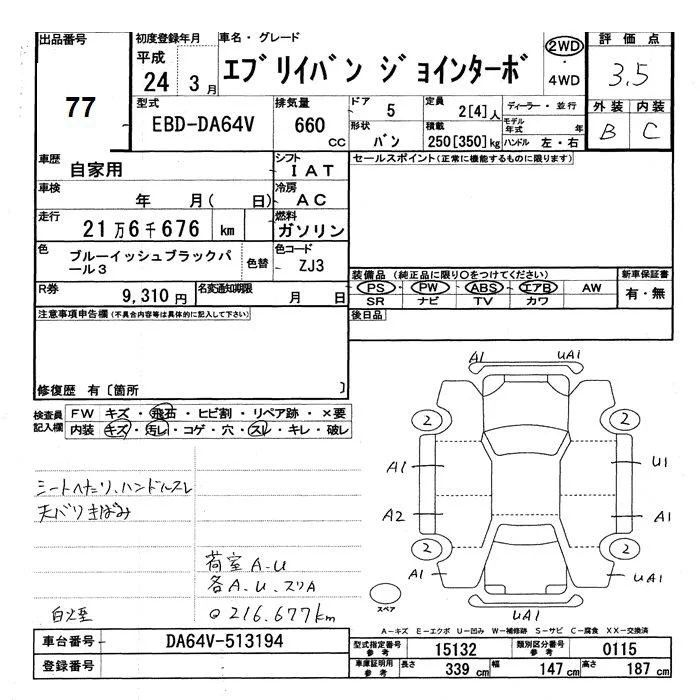 出品番号
77
初度登録年月
平成
24 3月
車名・グレード
エブリイバン ジョインターボ
2WD
・
4WD
評価点
3.5
外装 内装
B C
型式
EBD-DA64V
排気量
660
CC
ドア
5
定員
2[4]人
形状
バン
積載
250[350]kg
ディーラー・並行
モデル年式 年
ハンドル 左・右
車歴
自家用
シフト
IAT
車検
年 月( 日)
冷房
AC
走行
21万6千676 km
燃料
ガソリン
色
ブルーイッシュブラックパ
ール3
色替
色コード
ZJ3
R券
9,310円
名変通知期限
月 日
セールスポイント(正常に機能するものに限ります)
装備品 (純正品に限り○をつけてください)
PS PW ABS エアB AW
SR ナビ TV カワ
新車保証書
有・無
後日品
注意事項申告欄(不具合内容等は具体的に記入して下さい)
修復歴 有〔箇所 〕
検査員
記入欄
FW キズ・飛石・ヒビ割・リペア跡・×要
内装 キズ・汚レ・コゲ・穴・スレ・キレ・破レ
シートへたり、ハンドルスレ
天バリきばみ
荷室A.U
各A.U.スリA
216.677km
A1 UA1
2 2
A1 U1
A2 A1
2 2
A1 UA1
UA1
スペア
A－キズ E－エクボ U－凹み W－補修跡 S－サビ C－腐食 XX－交換済
車台番号
DA64V-513194
登録番号
型式指定番号
参考
15132
類別区分番号
参考
0115
車庫証明用
参考
長さ 339 cm
幅 147 cm
高さ 187 cm